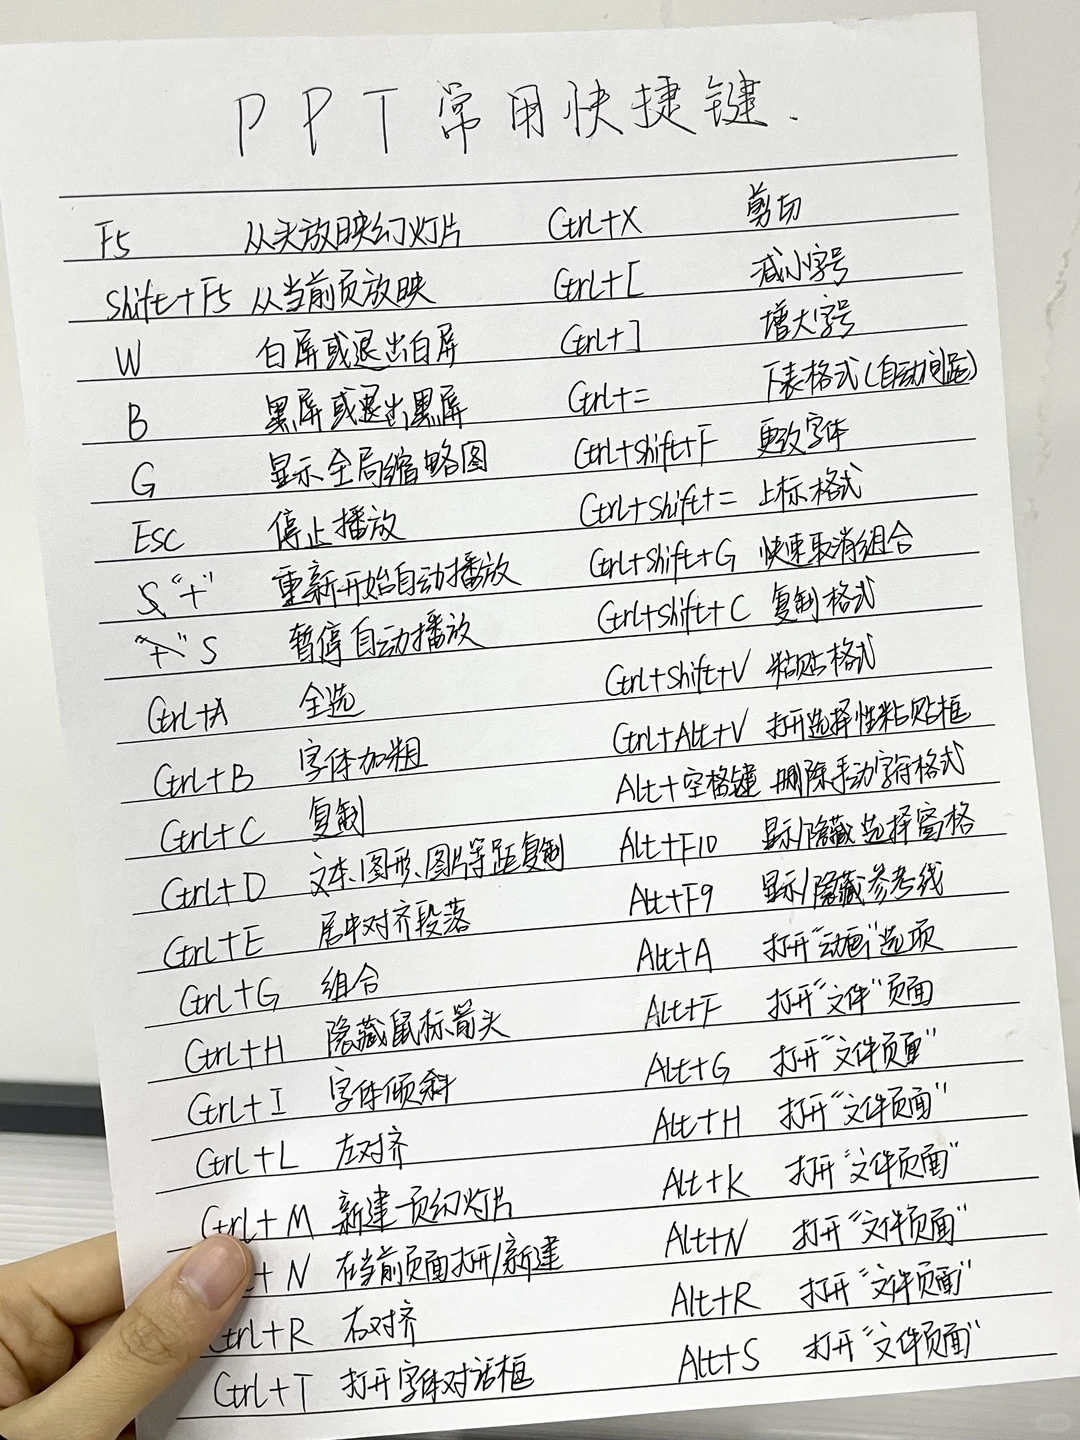 PPT常用快捷键.
F5 从头放映幻灯片 Ctrl+X 剪切
Shift+F5 从当前页放映 Ctrl+[ 减小字号
W 白屏或退出白屏 Ctrl+] 增大字号
B 黑屏或退出黑屏 Ctrl+= 下表格式(自动间距)
G 显示全局缩略图 Ctrl+Shift+F 更改字体
Esc 停止播放 Ctrl+Shift+= 上标格式
S"+" 重新开始自动播放 Ctrl+Shift+G 快速取消组合
"+"S 暂停自动播放 Ctrl+Shift+C 复制格式
Ctrl+A 全选 Ctrl+Shift+V 粘贴格式
Ctrl+B 字体加粗 Ctrl+Alt+V 打开选择性粘贴框
Ctrl+C 复制 Alt+空格键 删除手动字符格式
Ctrl+D 文本、图形、图片等距复制 Alt+F10 显示/隐藏选择窗格
Ctrl+E 居中对齐段落 Alt+F9 显示/隐藏参考线
Ctrl+G 组合 Alt+A 打开"动画"选项
Ctrl+H 隐藏鼠标箭头 Alt+F 打开"文件"页面
Ctrl+I 字体倾斜 Alt+G 打开"文件页面"
Ctrl+L 左对齐 Alt+H 打开"文件页面"
Ctrl+M 新建一页幻灯片 Alt+K 打开"文件页面"
+N 在当前页面打开/新建 Alt+N 打开"文件页面"
Ctrl+R 右对齐 Alt+R 打开"文件页面"
Ctrl+T 打开字体对话框 Alt+S 打开"文件页面"